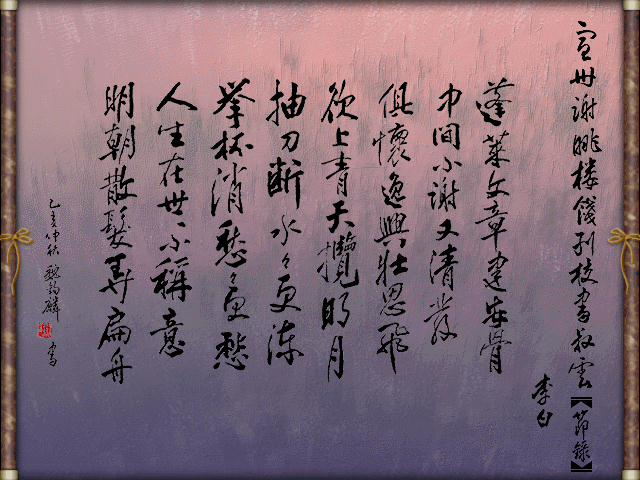 宣州谢眺楼餞别校書叔雲【節錄】
李白
蓬萊文章建安骨
中间小谢又清发
俱懷逸興壯思飛
欲上青天攬明月
抽刀断水々更流
举杯消愁々更愁
人生在世不稱意
明朝散髮弄扁舟
乙亥仲秋 麟 書